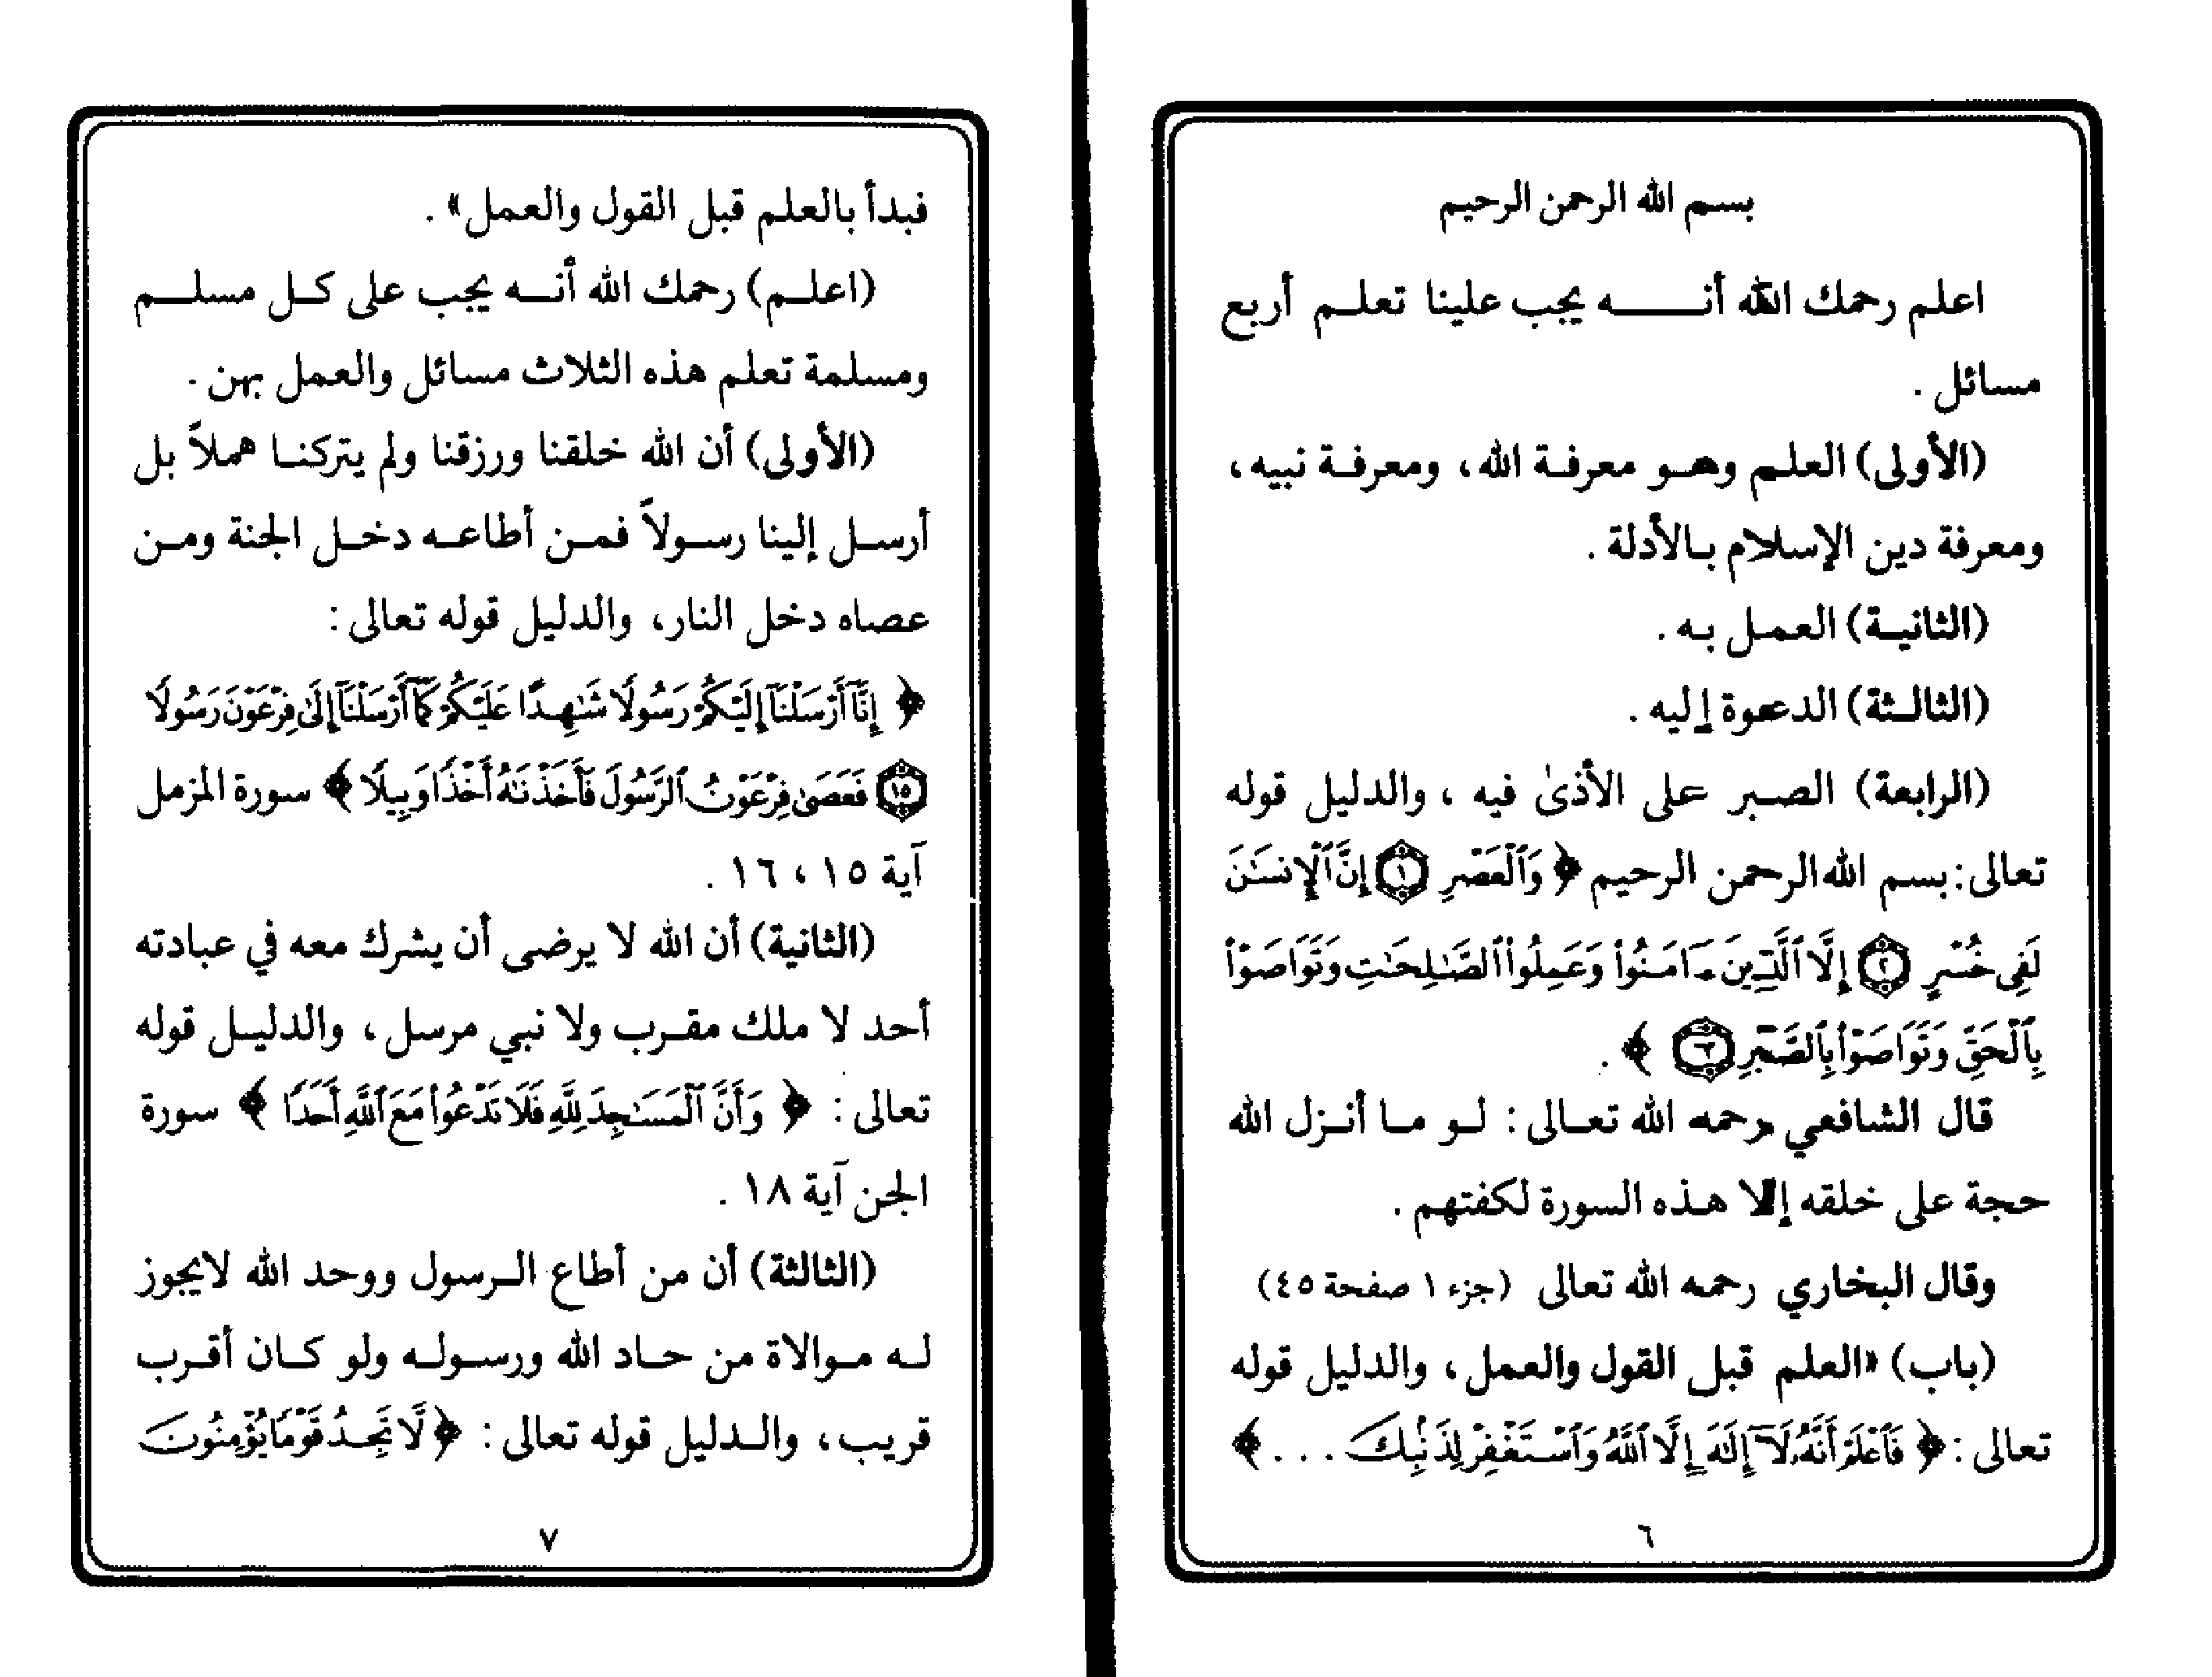 بسم الله الرحمن الرحيم
اعلم رحمك الله أنه يجب علينا تعلم أربع
مسائل .
(الأولى) العلم وهو معرفة الله ، ومعرفة نبيه ،
ومعرفة دين الإسلام بالأدلة .
(الثانية) العمل به .
(الثالثة) الدعوة إليه .
(الرابعة) الصبر على الأذىٰ فيه ، والدليل قوله
تعالى : بسم الله الرحمن الرحيم ﴿ وَٱلْعَصْرِ ١ إِنَّ ٱلْإِنسَـٰنَ
لَفِى خُسْرٍ ٢ إِلَّا ٱلَّذِينَ ءَامَنُوا۟ وَعَمِلُوا۟ ٱلصَّـٰلِحَـٰتِ وَتَوَاصَوْا۟
بِٱلْحَقِّ وَتَوَاصَوْا۟ بِٱلصَّبْرِ ٣ ﴾ .
قال الشافعي رحمه الله تعالى : لو ما أنزل الله
حجة على خلقه إلا هذه السورة لكفتهم .
وقال البخاري رحمه الله تعالى (جزء ١ صفحة ٤٥)
(باب) «العلم قبل القول والعمل ، والدليل قوله
تعالى : ﴿ فَٱعْلَمْ أَنَّهُۥ لَآ إِلَـٰهَ إِلَّا ٱللَّهُ وَٱسْتَغْفِرْ لِذَنۢبِكَ . . . ﴾
٦
فبدأ بالعلم قبل القول والعمل» .
(اعلم) رحمك الله أنه يجب على كل مسلم
ومسلمة تعلم هذه الثلاث مسائل والعمل بهن .
(الأولى) أن الله خلقنا ورزقنا ولم يتركنا هملاً بل
أرسل إلينا رسولاً فمن أطاعه دخل الجنة ومن
عصاه دخل النار ، والدليل قوله تعالى :
﴿ إِنَّآ أَرْسَلْنَآ إِلَيْكُمْ رَسُولًا شَـٰهِدًا عَلَيْكُمْ كَمَآ أَرْسَلْنَآ إِلَىٰ فِرْعَوْنَ رَسُولًا
١٥ فَعَصَىٰ فِرْعَوْنُ ٱلرَّسُولَ فَأَخَذْنَـٰهُ أَخْذًا وَبِيلًا ﴾ سورة المزمل
آية ١٥ ، ١٦ .
(الثانية) أن الله لا يرضى أن يشرك معه في عبادته
أحد لا ملك مقرب ولا نبي مرسل ، والدليل قوله
تعالى : ﴿ وَأَنَّ ٱلْمَسَـٰجِدَ لِلَّهِ فَلَا تَدْعُوا۟ مَعَ ٱللَّهِ أَحَدًا ﴾ سورة
الجن آية ١٨ .
(الثالثة) أن من أطاع الرسول ووحد الله لايجوز
له موالاة من حاد الله ورسوله ولو كان أقرب
قريب ، والدليل قوله تعالى : ﴿ لَّا تَجِدُ قَوْمًا يُؤْمِنُونَ
٧